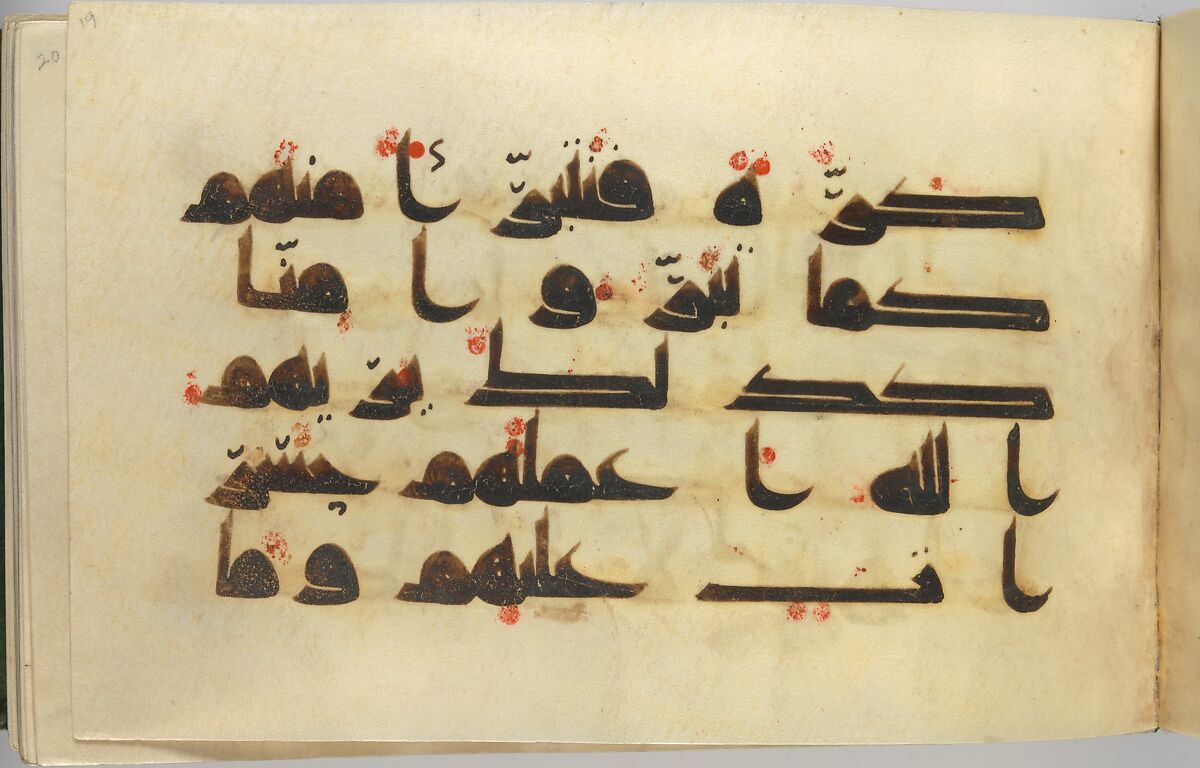 19
20
كرة فنتبرأ منهم
كما تبروا منا
كذلك يريهم
الله اعملهم حسر
ات عليهم وما